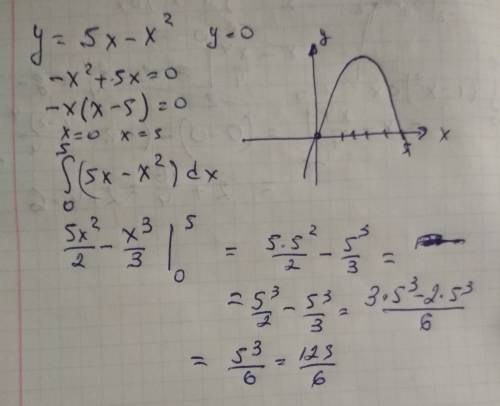 y = 5x - x² y = 0
-x² + 5x = 0
-x(x - 5) = 0
x = 0 x = 5
∫₀⁵ (5x - x²) dx
5x²/2 - x³/3 |₀⁵ = 5·5²/2 - 5³/3 =
= 5³/2 - 5³/3 = 3·5³ - 2·5³/6
= 5³/6 = 125/6
y
x
5